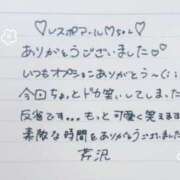 ♡レスポマ〜ル♡ちゃん♡
ありがとうございました♡
いつもオプションありがとう〜(;;)
今回ちょっとドカ笑いしてしまった
反省です...もっと可愛く笑えます
素敵な時間をありがとうございました
芹沢